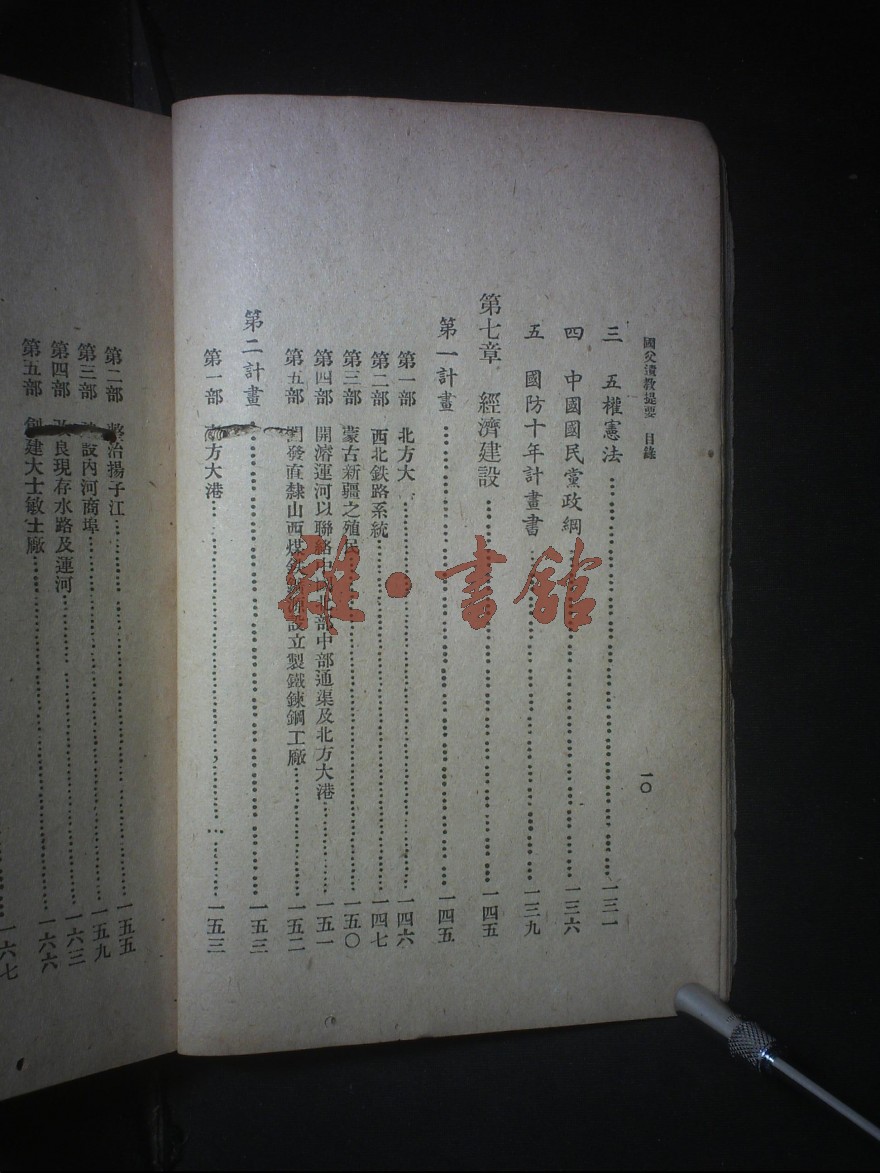 國父遺教提要 目錄
一〇
三 五權憲法……一三一
四 中國國民黨政綱……一三六
五 國防十年計畫書……一三九
第七章 經濟建設……一四五
第一計畫……一四五
第一部 北方大……一四六
第二部 西北鉄路系統……一四七
第三部 蒙古新疆之殖民……一五〇
第四部 開濬運河以聯絡中國北部中部通渠及北方大港……一五一
第五部 開發直隸山西煤鉄 設立製鐵鍊鋼工廠……一五二
第二計畫……一五三
第一部 方大港……一五三
第二部 整治揚子江……一五五
第三部 設內河商埠……一五九
第四部 良現存水路及運河……一六三
第五部 創建大士敏士廠……一六六
一六七
雜·書館